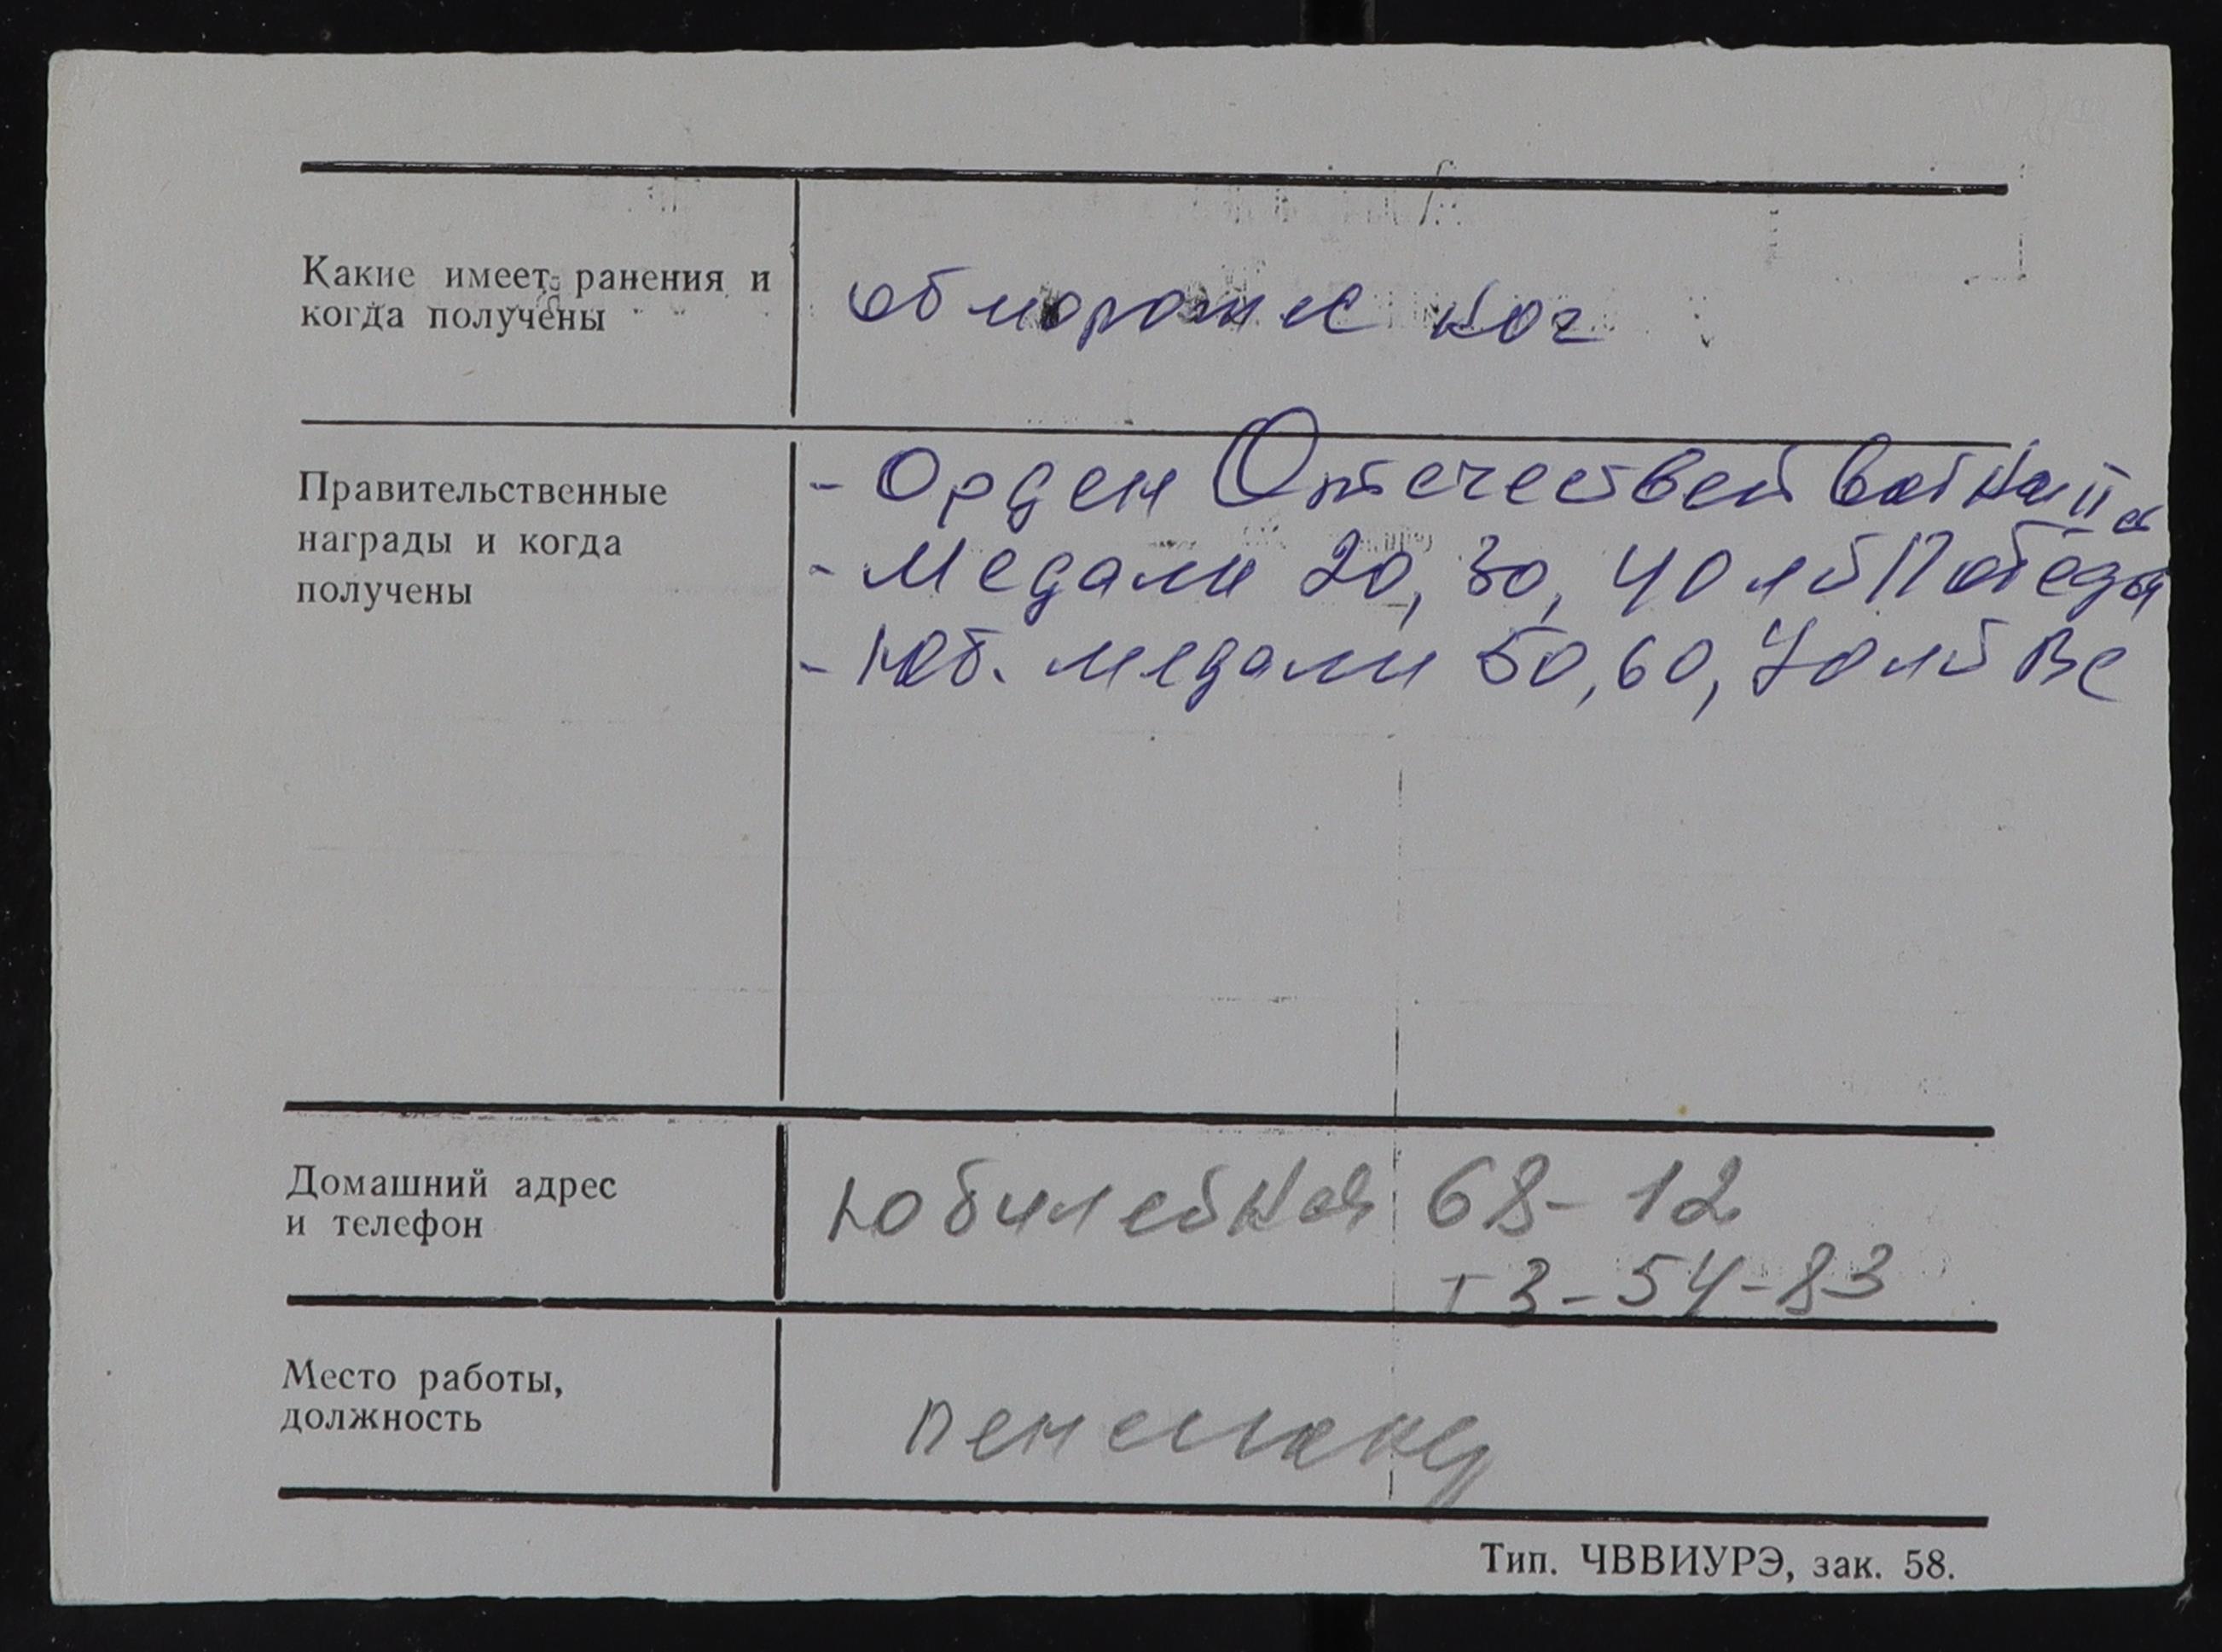 Какие имеет ранения и
когда получены
обморожение ног
Правительственные
награды и когда
получены
- Орден Отечествен войны II
- Медали 20, 30, 40 лет Победы
- Юб. медали 50, 60, 70 лет ВС
Домашний адрес
и телефон
Юбилейная 68-12
т 3-54-83
Место работы,
должность
пенсионер
Тип. ЧВВИУРЭ, зак. 58.